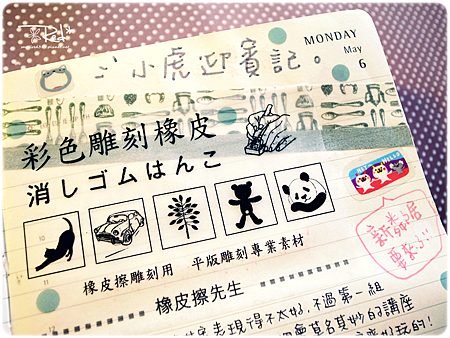 MONDAY
May
6
小虎迎賓記。
彩色雕刻橡皮
消しゴムはんこ
橡皮擦雕刻用 平版雕刻專業素材
橡皮擦先生
新鄰居
要來
表現得不太好,不過第一組
莫名其妙的講座
玩的!